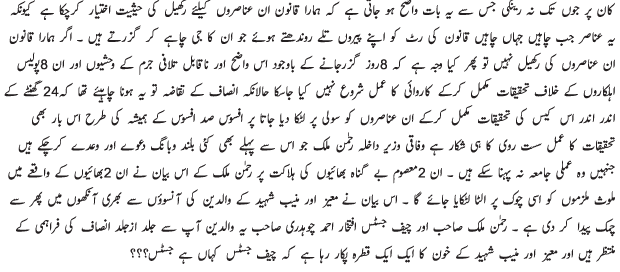 کان پر جوں تک نہ رینگی جس سے یہ بات واضح ہو جاتی ہے کہ ہمارا قانون ان عناصروں کیلئے رکھیل کی حیثیت اختیار کرچکا ہے کیونکہ
یہ عناصر جب چاہیں جہاں چاہیں قانون کی رٹ کو اپنے پیروں تلے روندھتے ہوئے جو ان کا جی چاہے کر گزرتے ہیں ۔ اگر ہمارا قانون
ان عناصروں کی رکھیل نہیں تو پھر کیا وجہ ہے کہ 8روز گزرجانے کے باوجود اس واضح اور ناقابل تلافی جرم کے وحشیوں اور ان 8پولیس
اہلکاروں کے خلاف تحقیقات مکمل کرکے کاروائی کا عمل شروع نہیں کیا جاسکا حالانکہ انصاف کے تقاضہ تو یہ ہونا چاہیئے تھا کہ24 گھنٹے کے
اندر اندر اس کیس کی تحقیقات مکمل کرکے ان عناصروں کو سولی پر لٹکا دیا جاتا پر افسوس صد افسوس کے ہمیشہ کی طرح اس بار بھی
تحقیقات کا عمل سست روی کا ہی شکار ہے وفاقی وزیر داخلہ رحٰمن ملک جو اس سے پہلے بھی کئی بلند وبانگ دعوے اور وعدے کرچکے ہیں
جنہیں وہ عملی جامعہ نہ پہنا سکے ہیں ۔ ان 2معصوم بے گناہ بھائیوں کی ہلاکت پر رحٰمن ملک کے اس بیان نے ان 2بھائیوں کے واقعے میں
ملوث ملزموں کو اسی چوک پر الٹا لٹکایا جائے گا ۔ اس بیان نے معیز اور منیب شہید کے والدین کی آنسوؤں سے بھری آنکھوں میں پھر سے
چمک پیدا کر دی ہے ۔ رحٰمن ملک صاحب اور چیف جسٹس افتخار احمد چوہدری یہ والدین آپ سے جلد ازجلد انصاف کی فراہمی کے
منتظر ہیں اور معیز اور منیب شہید کے خون کا ایک ایک قطرہ پکار رہا ہے کہ چیف جسٹس کہاں ہے جسٹس؟؟؟